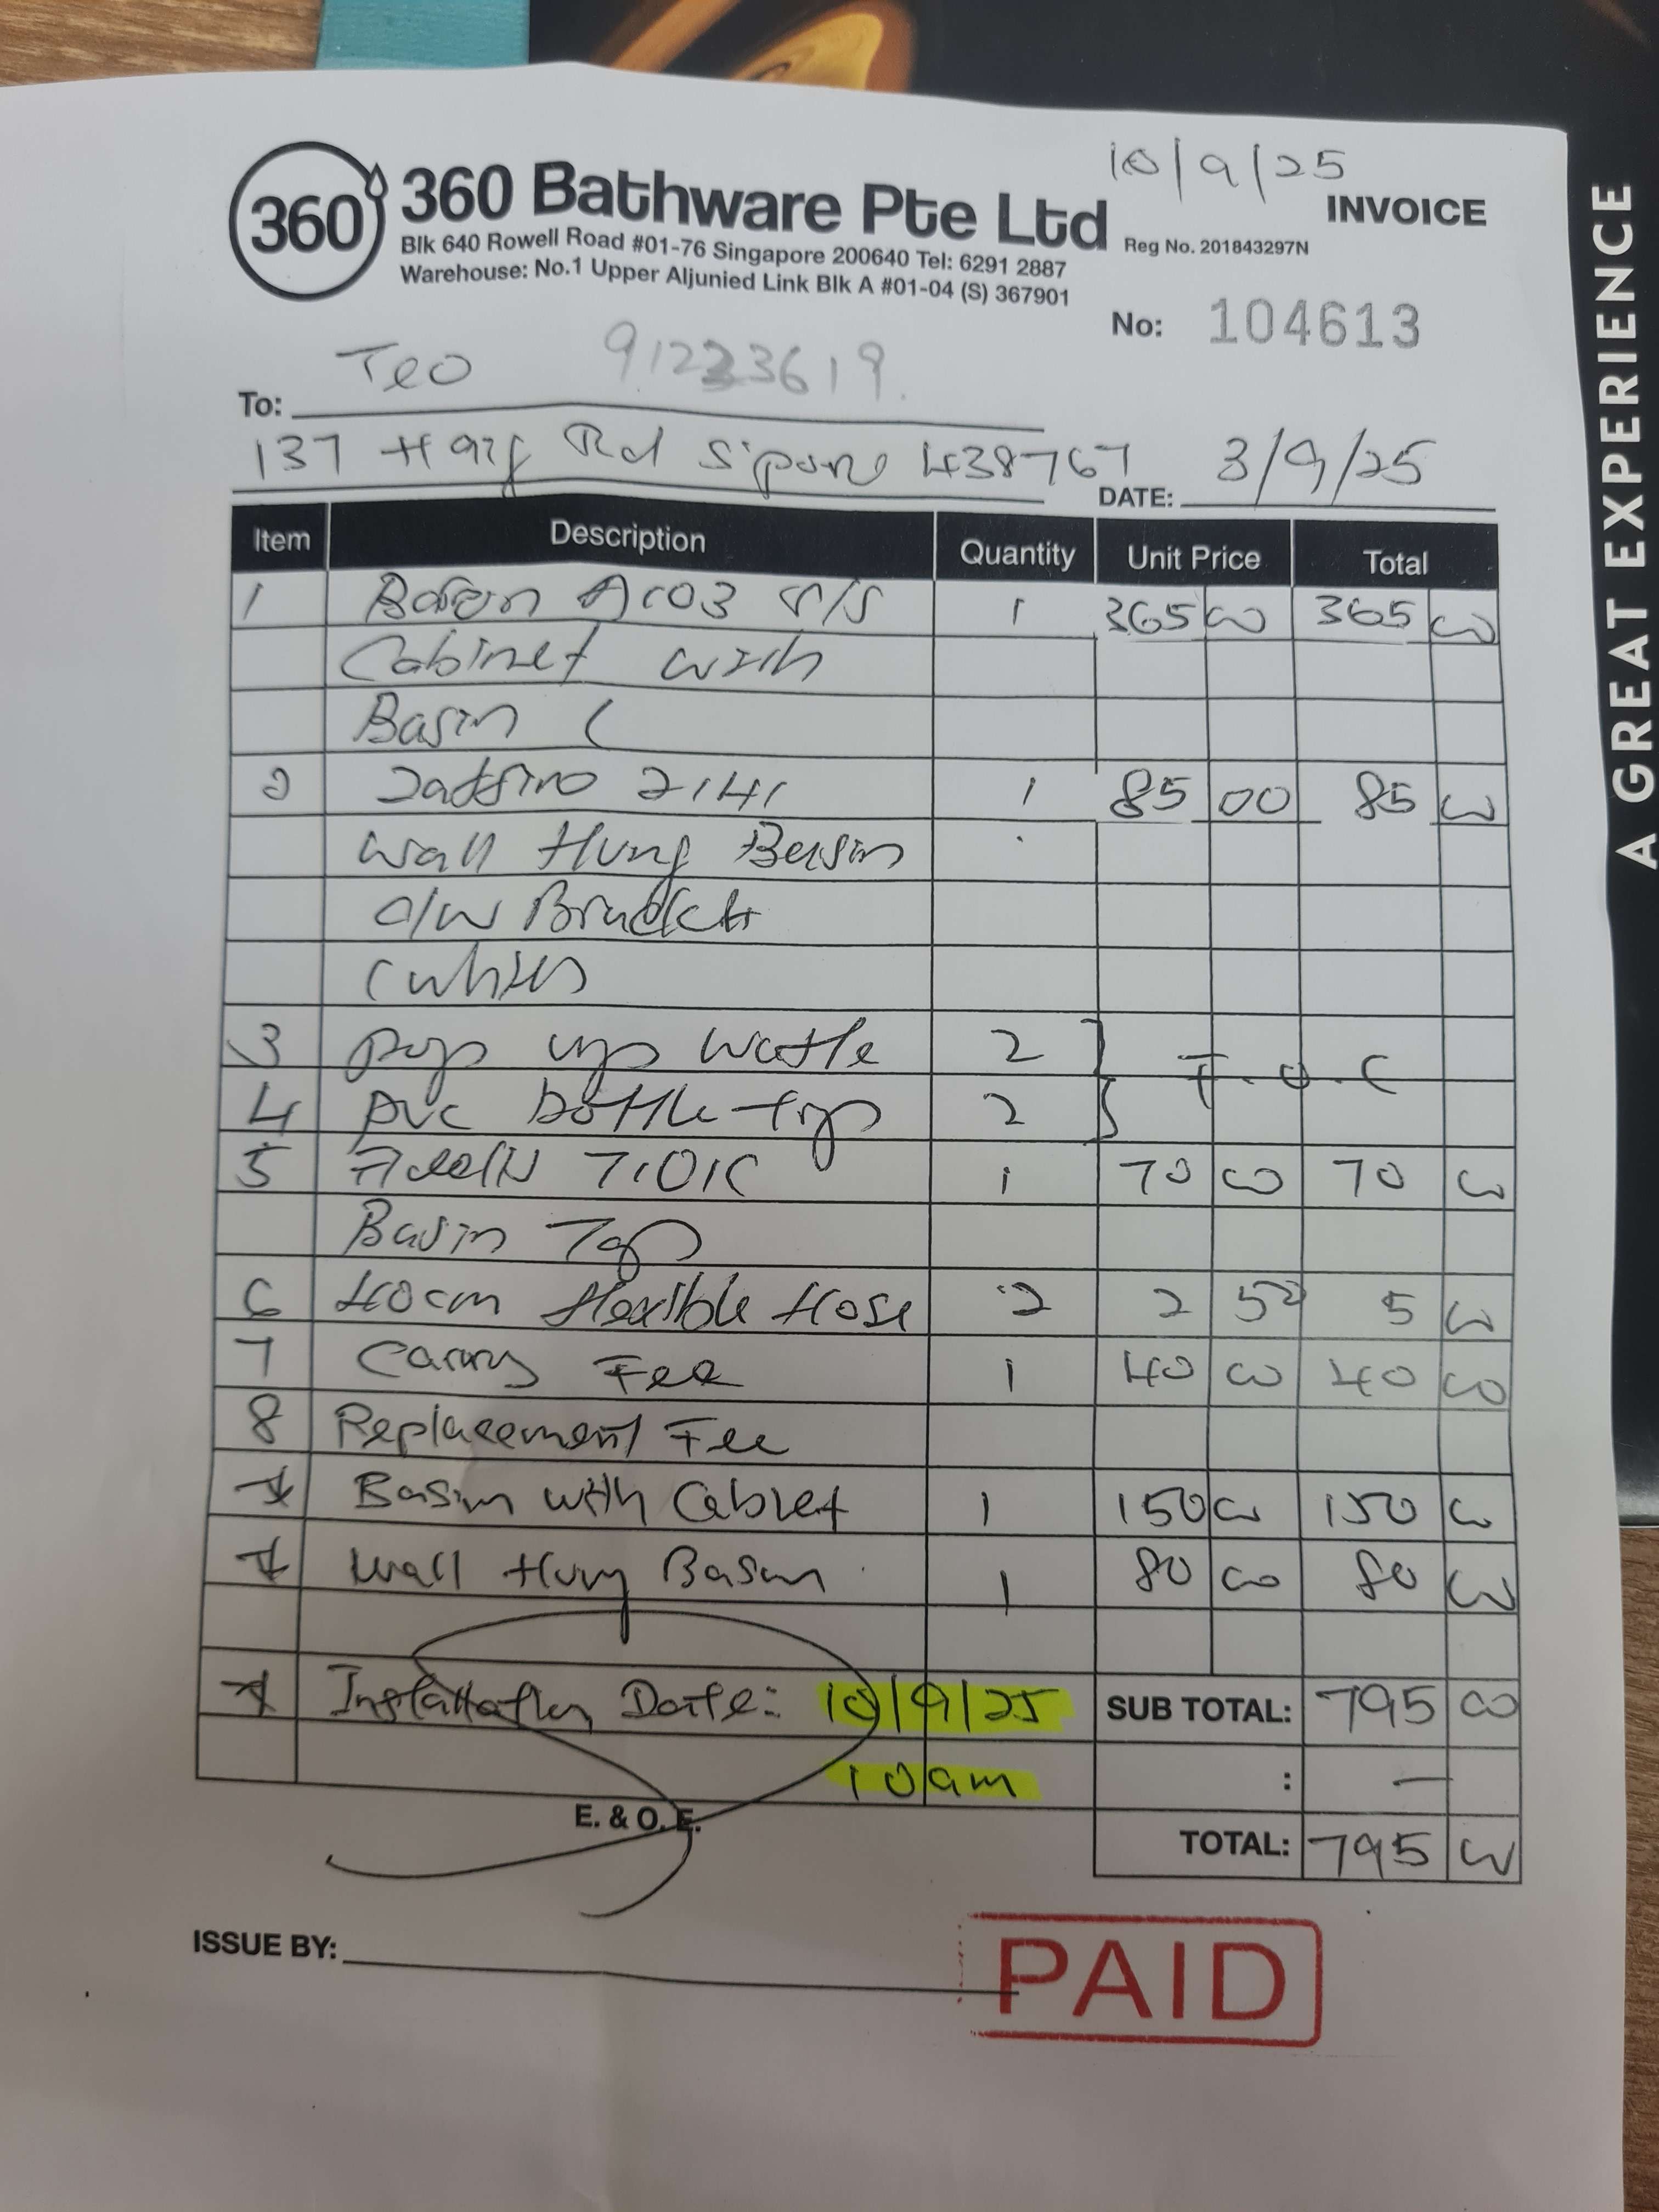 10/9/25
360
360 Bathware Pte Ltd
INVOICE
Blk 640 Rowell Road #01-76 Singapore 200640 Tel: 6291 2887
Reg No. 201843297N
Warehouse: No.1 Upper Aljunied Link Blk A #01-04 (S) 367901
No: 104613
To: Teo
137 Haig Rd S'pore 438767
DATE: 3/9/25
Item Description Quantity Unit Price Total
1 A103 S/S 1 365 00 365 00
Cabinet with
Basin (
2 2141 1 85 00 85 00
Wall Hung Basin
c/w Bracket
(white)
3 pop up waste 2 F.O.C
4 PVC bottle trap 2
5 7101C 1 70 00 70 00
Basin Tap
6 40cm flexible Hose 2 2 50 5 00
7 Carry Fee 1 40 00 40 00
8 Replacement Fee
* Basin with Cabinet 1 150 00 150 00
* Wall Hung Basin 1 80 00 80 00
* Installation Date: 10/9/25 SUB TOTAL: 795 00
10am : —
E. & O. E.
TOTAL: 795 00
ISSUE BY:
PAID
A GREAT EXPERIENCE